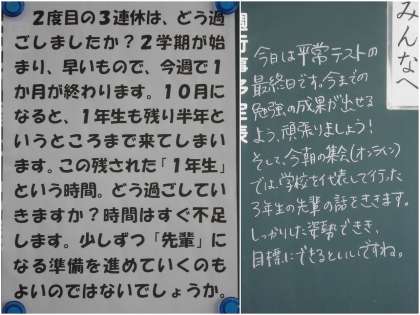 ２度目の３連休は、どう過
ごしましたか？２学期が始
まり、早いもので、今週で１
か月が終わります。１０月に
なると、１年生も残り半年と
いうところまで来てしまい
ます。この残された「１年生」
という時間。どう過ごしてい
きますか？時間はすぐ不足
します。少しずつ「先輩」に
なる準備を進めていくのも
よいのではないでしょうか。
みんなへ
今日は平常テストの
最終日です。今までの
勉強の成果が出せる
よう、頑張りましょう！
そして、今朝の集会(オンライン)
では、学校を代表して行った
3年生の先輩の話をききます。
しっかりした姿勢でき、
目標にできるといいですね。